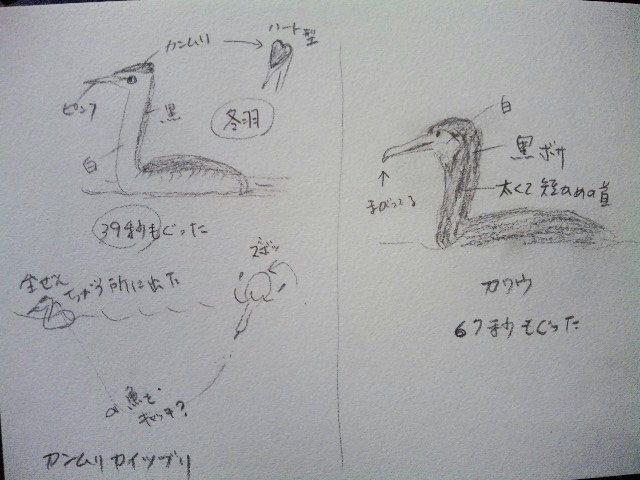 カンムリ
ハート型
ピンク
黒
冬羽
白
39秒もぐった
ズボッ
全ぜん
ちがう所に出た
魚を
キャッチ?
カンムリカイツブリ
白
黒ボサ
太くて短かめの首
まがってる
カワウ
67秒もぐった